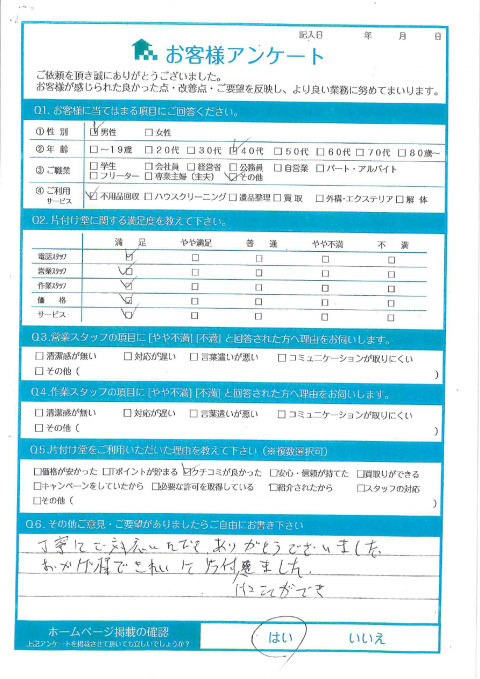 記入日　年　月　日
お客様アンケート
ご依頼を頂き誠にありがとうございました。
お客様が感じられた良かった点・改善点・ご要望を反映し、より良い業務に努めてまいります。
Q1. お客様に当てはまる項目にご回答ください。
①性 別 ☑男性 □女性
②年 齢 □〜19歳 □20代 □30代 ☑40代 □50代 □60代 □70代 □80歳〜
③ご職業 □学生 □会社員 □経営者 □公務員 □自営業 □パート・アルバイト
□フリーター □専業主婦（主夫） ☑その他
④ご利用サービス ☑不用品回収 □ハウスクリーニング □遺品整理 □買 取 □外構・エクステリア □解 体
Q2. 片付け堂に関する満足度を教えて下さい。
満 足 やや満足 普 通 やや不満 不 満
電話スタッフ ☑ □ □ □ □
営業スタッフ ☑ □ □ □ □
作業スタッフ ☑ □ □ □ □
価 格 ☑ □ □ □ □
サービス ☑ □ □ □ □
Q3. 営業スタッフの項目に [やや不満] [不満] と回答された方へ理由をお伺いします。
□清潔感が無い □対応が遅い □言葉遣いが悪い □コミュニケーションが取りにくい
□その他（ ）
Q4. 作業スタッフの項目に [やや不満] [不満] と回答された方へ理由をお伺いします。
□清潔感が無い □対応が遅い □言葉遣いが悪い □コミュニケーションが取りにくい
□その他（ ）
Q5. 片付け堂をご利用いただいた理由を教えて下さい（※複数選択可）
□価格が安かった □Tポイントが貯まる ☑クチコミが良かった □安心・信頼が持てた □買取りができる
□キャンペーンをしていたから □必要な許可を取得している □紹介されたから □スタッフの対応
□その他（ ）
Q6. その他ご意見・ご要望がありましたらご自由にお書き下さい
丁寧にご対応いただき、ありがとうございました。
おかげ様できれいに片付きました。
ことができ
ホームページ掲載の確認 はい いいえ
上記アンケートを掲載させて頂いても宜しいでしょうか？